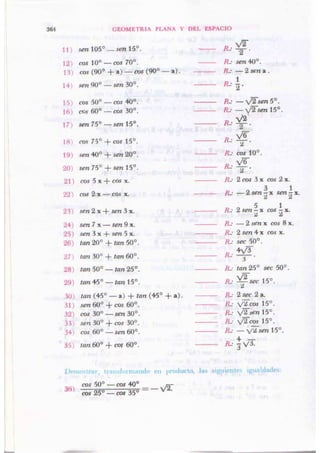 364 GEOMETRIA PLANA Y DEL ESPACIO
11) sen 105° — sen 15°. R.: √2/2.
12) cos 10° — cos 70°. R.: sen 40°.
13) cos (90° + a) — cos (90° — a). R.: — 2 sen a.
14) sen 90° — sen 30°. R.: 1/2.
15) cos 50° — cos 40°. R.: — √2 sen 5°.
16) cos 60° — cos 30°. R.: — √2 sen 15°.
17) sen 75° — sen 15°. R.: √2/2.
18) cos 75° + cos 15°. R.: √6/2.
19) sen 40° + sen 20°. R.: cos 10°.
20) sen 75° + sen 15°. R.: √6/2.
21) cos 5 x + cos x. R.: 2 cos 3 x cos 2 x.
22) cos 2 x — cos x. R.: — 2 sen 3/2 x sen 1/2 x.
23) sen 2 x + sen 3 x. R.: 2 sen 5/2 x cos 1/2 x.
24) sen 7 x — sen 9 x. R.: — 2 sen x cos 8 x.
25) sen 3 x + sen 5 x. R.: 2 sen 4 x cos x.
26) tan 20° + tan 50°. R.: sec 50°.
27) tan 30° + tan 60°. R.: 4√3/3.
28) tan 50° — tan 25°. R.: tan 25° sec 50°.
29) tan 45° — tan 15°. R.: √2/2 sec 15°.
30) tan (45° — a) + tan (45° + a). R.: 2 sec 2 a.
31) sen 60° + cos 60°. R.: √2 cos 15°.
32) cos 30° — sen 30°. R.: √2 sen 15°.
33) sen 30° + cos 30°. R.: √2 cos 15°.
34) cos 60° — sen 60°. R.: — √2 sen 15°.
35) tan 60° + cot 60°. R.: 4/3 √3.
Demostrar, transformando en producto, las siguientes igualdades:
36) cos 50° — cos 40° / cos 25° — cos 35° = — √2.